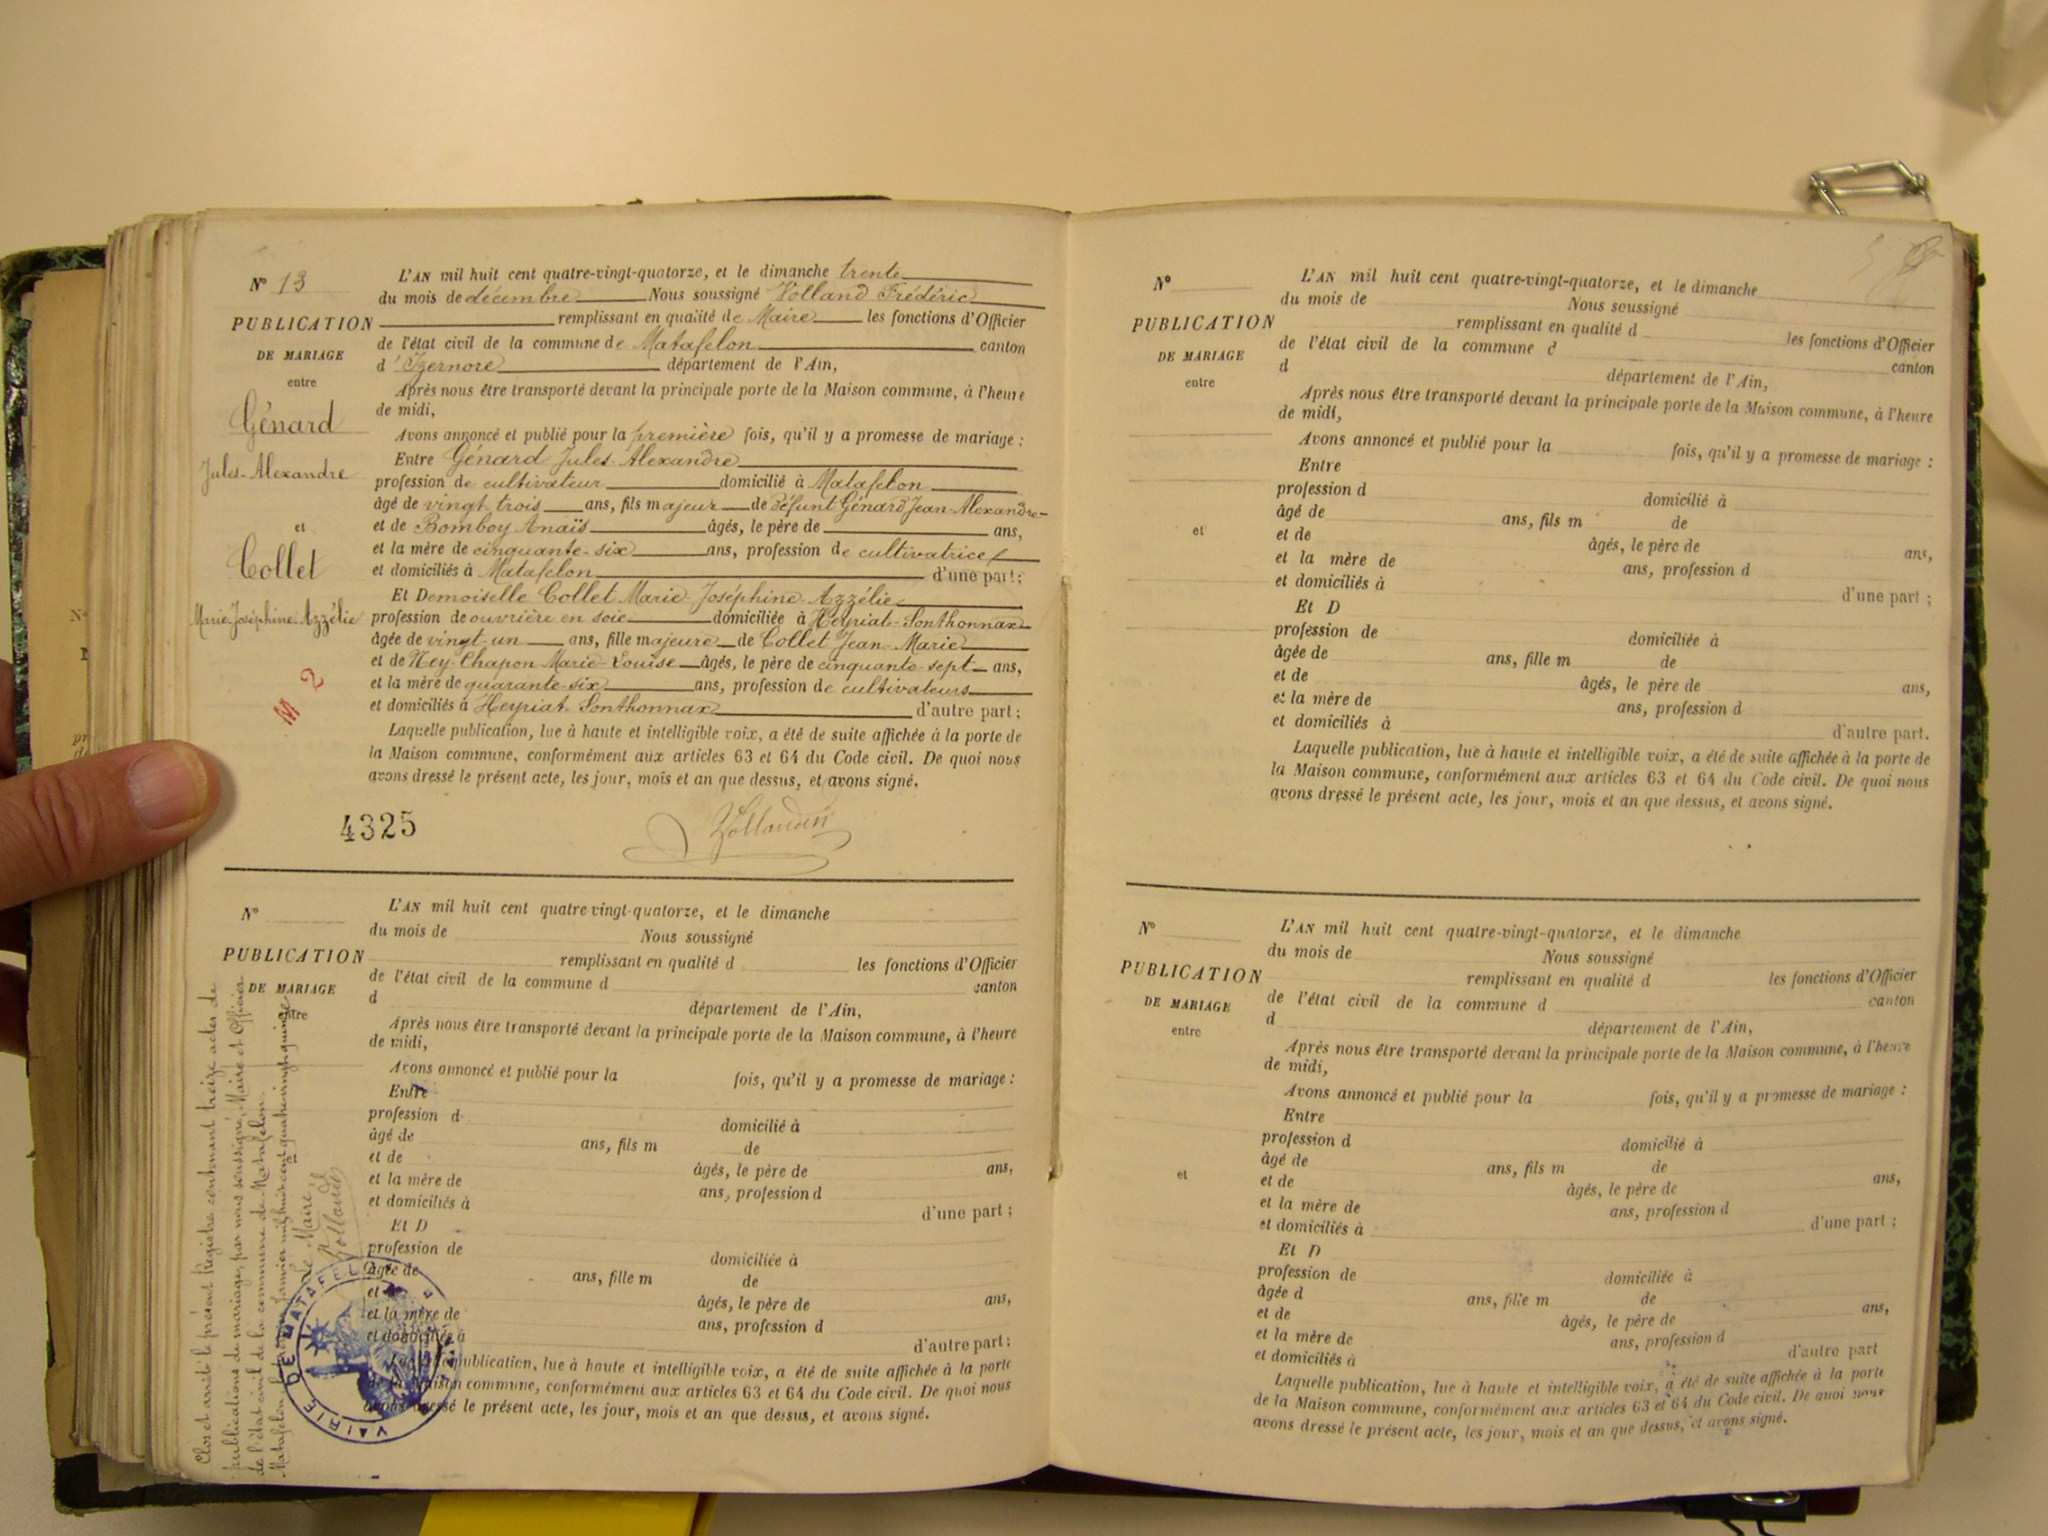 N° 13
PUBLICATION
DE MARIAGE
entre
Génard
Jules-Alexandre
et
Collet
Marie-Joséphine-Azzélie
M 2
L'AN mil huit cent quatre-vingt-quatorze, et le dimanche trente
du mois de décembre Nous soussigné Volland Frédéric
remplissant en qualité de Maire les fonctions d'Officier
de l'état civil de la commune de Matafelon canton
d'Izernore département de l'Ain,
Après nous être transporté devant la principale porte de la Maison commune, à l'heure
de midi,
Avons annoncé et publié pour la première fois, qu'il y a promesse de mariage :
Entre Génard Jules-Alexandre
profession de cultivateur domicilié à Matafelon
âgé de vingt trois ans, fils majeur de défunt Génard Jean-Alexandre
et de Bomboy Anaïs âgés, le père de ans,
et la mère de cinquante-six ans, profession de cultivatrice
et domiciliés à Matafelon d'une part ;
Et Demoiselle Collet Marie-Joséphine-Azzélie
profession de ouvrière en soie domiciliée à Heyriat-Sonthonnax
âgée de vingt-un ans, fille majeure de Collet Jean-Marie
et de Ney-Chapon Marie-Louise âgés, le père de cinquante-sept ans,
et la mère de quarante-six ans, profession de cultivateurs
et domiciliés à Heyriat Sonthonnax d'autre part ;
Laquelle publication, lue à haute et intelligible voix, a été de suite affichée à la porte de
la Maison commune, conformément aux articles 63 et 64 du Code civil. De quoi nous
avons dressé le présent acte, les jour, mois et an que dessus, et avons signé.
4325
Volland
N°
PUBLICATION
DE MARIAGE
entre
L'AN mil huit cent quatre vingt-quatorze, et le dimanche
du mois de Nous soussigné
remplissant en qualité d les fonctions d'Officier
de l'état civil de la commune d canton
d département de l'Ain,
Après nous être transporté devant la principale porte de la Maison commune, à l'heure
de midi,
Avons annoncé et publié pour la fois, qu'il y a promesse de mariage :
Entre
profession d domicilié à
âgé de ans, fils m de
et de âgés, le père de ans,
et la mère de ans, profession d
et domiciliés à d'une part ;
Et D
profession de domiciliée à
âgée de ans, fille m de
et de âgés, le père de ans,
et la mère de ans, profession d
et domiciliés à d'autre part :
Laquelle publication, lue à haute et intelligible voix, a été de suite affichée à la porte
de la Maison commune, conformément aux articles 63 et 64 du Code civil. De quoi nous
avons dressé le présent acte, les jour, mois et an que dessus, et avons signé.
Clos et arrêté le présent Registre contenant treize actes de
publications de mariage, par nous soussigné, Maire et Officier
de l'état civil de la commune de Matafelon.
Matafelon janvier mil huit cent quatre vingt quinze
Le Maire
Volland
MAIRIE DE MATAFELON
N°
PUBLICATION
DE MARIAGE
entre
et
L'AN mil huit cent quatre-vingt-quatorze, et le dimanche
du mois de Nous soussigné
remplissant en qualité d les fonctions d'Officier
de l'état civil de la commune d canton
d département de l'Ain,
Après nous être transporté devant la principale porte de la Maison commune, à l'heure
de midi,
Avons annoncé et publié pour la fois, qu'il y a promesse de mariage :
Entre
profession d domicilié à
âgé de ans, fils m de
et de âgés, le père de ans,
et la mère de ans, profession d
et domiciliés à d'une part ;
Et D
profession de domiciliée à
âgée de ans, fille m de
et de âgés, le père de ans,
et la mère de ans, profession d
et domiciliés à d'autre part.
Laquelle publication, lue à haute et intelligible voix, a été de suite affichée à la porte de
la Maison commune, conformément aux articles 63 et 64 du Code civil. De quoi nous
avons dressé le présent acte, les jour, mois et an que dessus, et avons signé.
N°
PUBLICATION
DE MARIAGE
entre
et
L'AN mil huit cent quatre-vingt-quatorze, et le dimanche
du mois de Nous soussigné
remplissant en qualité d les fonctions d'Officier
de l'état civil de la commune d canton
d département de l'Ain,
Après nous être transporté devant la principale porte de la Maison commune, à l'heure
de midi,
Avons annoncé et publié pour la fois, qu'il y a promesse de mariage :
Entre
profession d domicilié à
âgé de ans, fils m de
et de âgés, le père de ans,
et la mère de ans, profession d
et domiciliés à d'une part ;
Et D
profession de domiciliée à
âgée d ans, fille m de
et de âgés, le père de ans,
et la mère de ans, profession d
et domiciliés à d'autre part
Laquelle publication, lue à haute et intelligible voix, a été de suite affichée à la porte
de la Maison commune, conformément aux articles 63 et 64 du Code civil. De quoi nous
avons dressé le présent acte, les jour, mois et an que dessus, et avons signé.